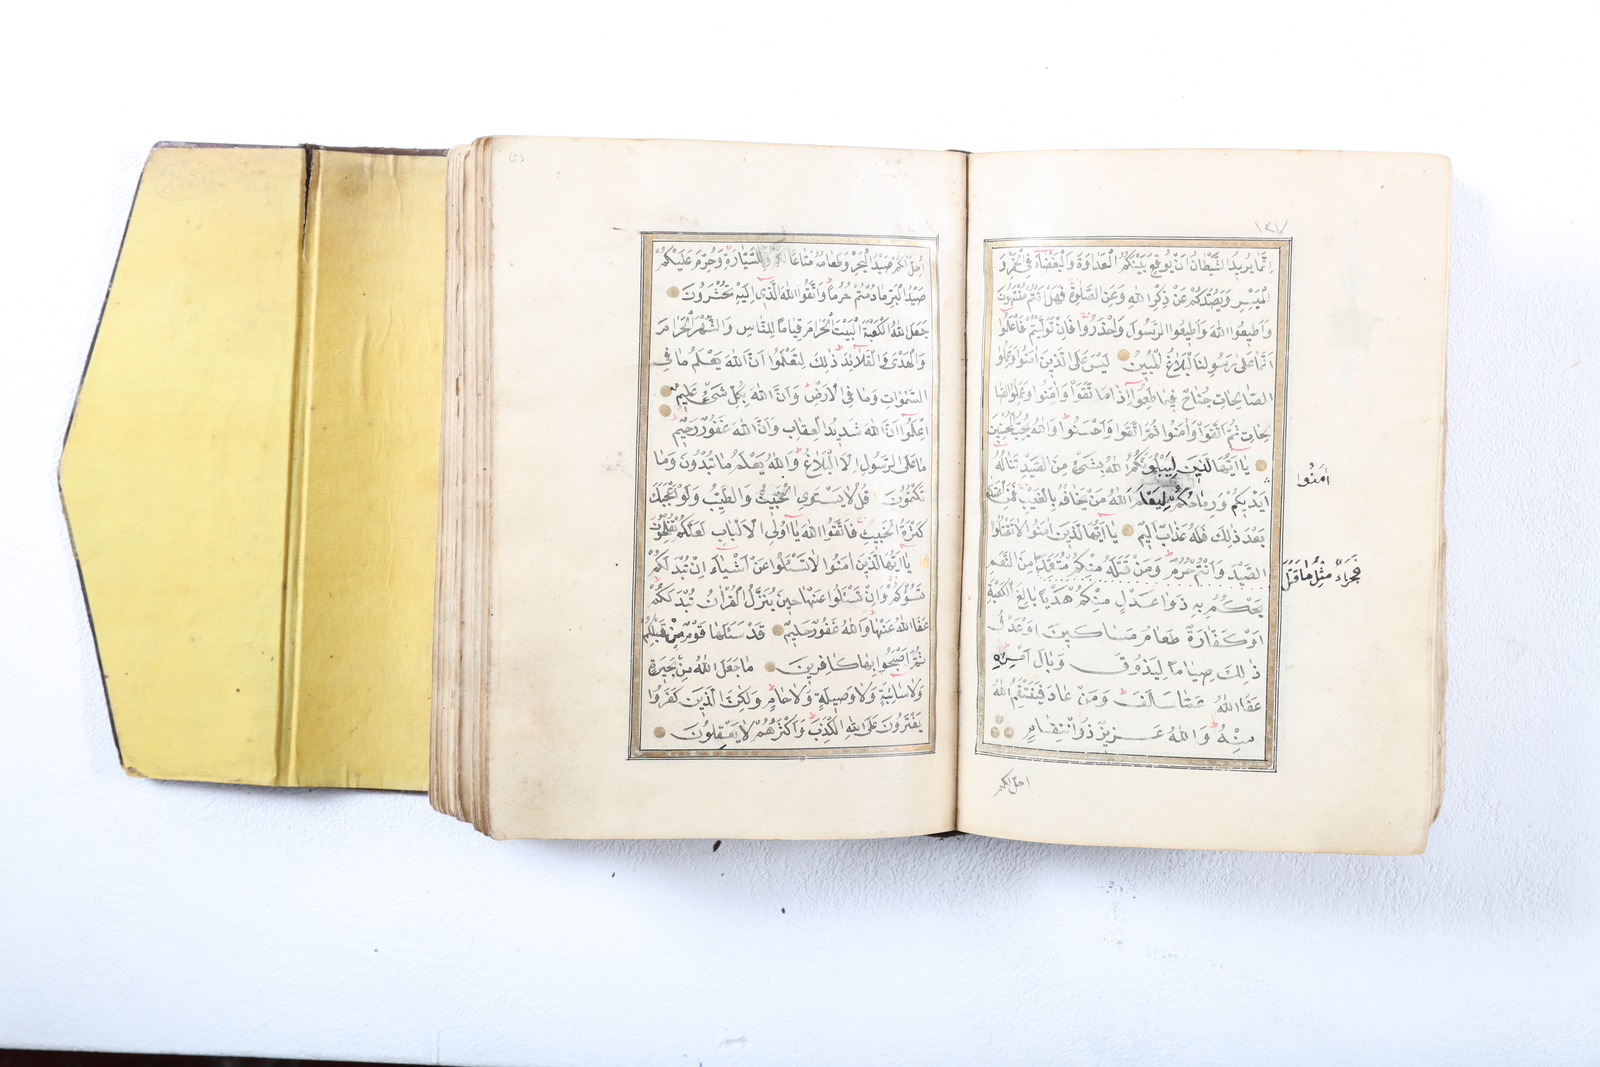 ١٢٧
اِنَّمَا يُرِيدُ الشَّيْطَانُ اَنْ يُوقِعَ بَيْنَكُمُ الْعَدَاوَةَ وَالْبَغْضَاۤءَ فِى الْخَمْرِ وَ
الْمَيْسِرِ وَيَصُدَّكُمْ عَنْ ذِكْرِ اللهِ وَعَنِ الصَّلٰوةِ فَهَلْ اَنْتُمْ مُنْتَهُونَ
وَاَطِيعُوا اللهَ وَاَطِيعُوا الرَّسُولَ وَاحْذَرُوا فَاِنْ تَوَلَّيْتُمْ فَاعْلَمُوا
اَنَّمَا عَلٰى رَسُولِنَا الْبَلَاغُ الْمُبِينُ لَيْسَ عَلَى الَّذِينَ اٰمَنُوا وَعَمِلُوا
الصَّالِحَاتِ جُنَاحٌ فِيمَا طَعِمُوا اِذَا مَا اتَّقَوْا وَاٰمَنُوا وَعَمِلُوا الصَّا
لِحَاتِ ثُمَّ اتَّقَوْا وَاٰمَنُوا ثُمَّ اتَّقَوْا وَاَحْسَنُوا وَاللهُ يُحِبُّ الْمُحْسِنِينَ
يَا اَيُّهَا الَّذِينَ لَيَبْلُوَنَّكُمُ اللهُ بِشَىْءٍ مِنَ الصَّيْدِ تَنَالُهُ
اٰمَنُوا
اَيْدِيكُمْ وَرِمَاحُكُمْ لِيَعْلَمَ اللهُ مَنْ يَخَافُهُ بِالْغَيْبِ فَمَنِ اعْتَدٰى
بَعْدَ ذٰلِكَ فَلَهُ عَذَابٌ اَلِيمٌ يَا اَيُّهَا الَّذِينَ اٰمَنُوا لَا تَقْتُلُوا
الصَّيْدَ وَاَنْتُمْ حُرُمٌ وَمَنْ قَتَلَهُ مِنْكُمْ مُتَعَمِّدًا مِنَ النَّعَمِ
فَجَزَاۤءٌ مِثْلُ مَا قَتَلَ
يَحْكُمُ بِهِ ذَوَا عَدْلٍ مِنْكُمْ هَدْيًا بَالِغَ الْكَعْبَةِ
اَوْ كَفَّارَةٌ طَعَامُ مَسَاكِينَ اَوْ عَدْلُ
ذٰلِكَ صِيَامًا لِيَذُوقَ وَبَالَ اَمْرِهِ
عَفَا اللهُ عَمَّا سَلَفَ وَمَنْ عَادَ فَيَنْتَقِمُ اللهُ
مِنْهُ وَاللهُ عَزِيزٌ ذُو انْتِقَامٍ
احل لكم
63
اُحِلَّ لَكُمْ صَيْدُ الْبَحْرِ وَطَعَامُهُ مَتَاعًا لَكُمْ وَلِلسَّيَّارَةِ وَحُرِّمَ عَلَيْكُمْ
صَيْدُ الْبَرِّ مَا دُمْتُمْ حُرُمًا وَاتَّقُوا اللهَ الَّذِى اِلَيْهِ تُحْشَرُونَ
جَعَلَ اللهُ الْكَعْبَةَ الْبَيْتَ الْحَرَامَ قِيَامًا لِلنَّاسِ وَالشَّهْرَ الْحَرَامَ
وَالْهَدْىَ وَالْقَلَاۤئِدَ ذٰلِكَ لِتَعْلَمُوا اَنَّ اللهَ يَعْلَمُ مَا فِى
السَّمٰوَاتِ وَمَا فِى الْاَرْضِ وَاَنَّ اللهَ بِكُلِّ شَىْءٍ عَلِيمٌ
اِعْلَمُوا اَنَّ اللهَ شَدِيدُ الْعِقَابِ وَاَنَّ اللهَ غَفُورٌ رَحِيمٌ
مَا عَلَى الرَّسُولِ اِلَّا الْبَلَاغُ وَاللهُ يَعْلَمُ مَا تُبْدُونَ وَمَا
تَكْتُمُونَ قُلْ لَا يَسْتَوِى الْخَبِيثُ وَالطَّيِّبُ وَلَوْ اَعْجَبَكَ
كَثْرَةُ الْخَبِيثِ فَاتَّقُوا اللهَ يَا اُولِى الْاَلْبَابِ لَعَلَّكُمْ تُفْلِحُونَ
يَا اَيُّهَا الَّذِينَ اٰمَنُوا لَا تَسْئَلُوا عَنْ اَشْيَاۤءَ اِنْ تُبْدَ لَكُمْ
تَسُؤْكُمْ وَاِنْ تَسْئَلُوا عَنْهَا حِينَ يُنَزَّلُ الْقُرْاٰنُ تُبْدَ لَكُمْ
عَفَا اللهُ عَنْهَا وَاللهُ غَفُورٌ حَلِيمٌ قَدْ سَئَلَهَا قَوْمٌ مِنْ قَبْلِكُمْ
ثُمَّ اَصْبَحُوا بِهَا كَافِرِينَ مَا جَعَلَ اللهُ مِنْ بَحِيرَةٍ
وَلَا سَاۤئِبَةٍ وَلَا وَصِيلَةٍ وَلَا حَامٍ وَلٰكِنَّ الَّذِينَ كَفَرُوا
يَفْتَرُونَ عَلَى اللهِ الْكَذِبَ وَاَكْثَرُهُمْ لَا يَعْقِلُونَ